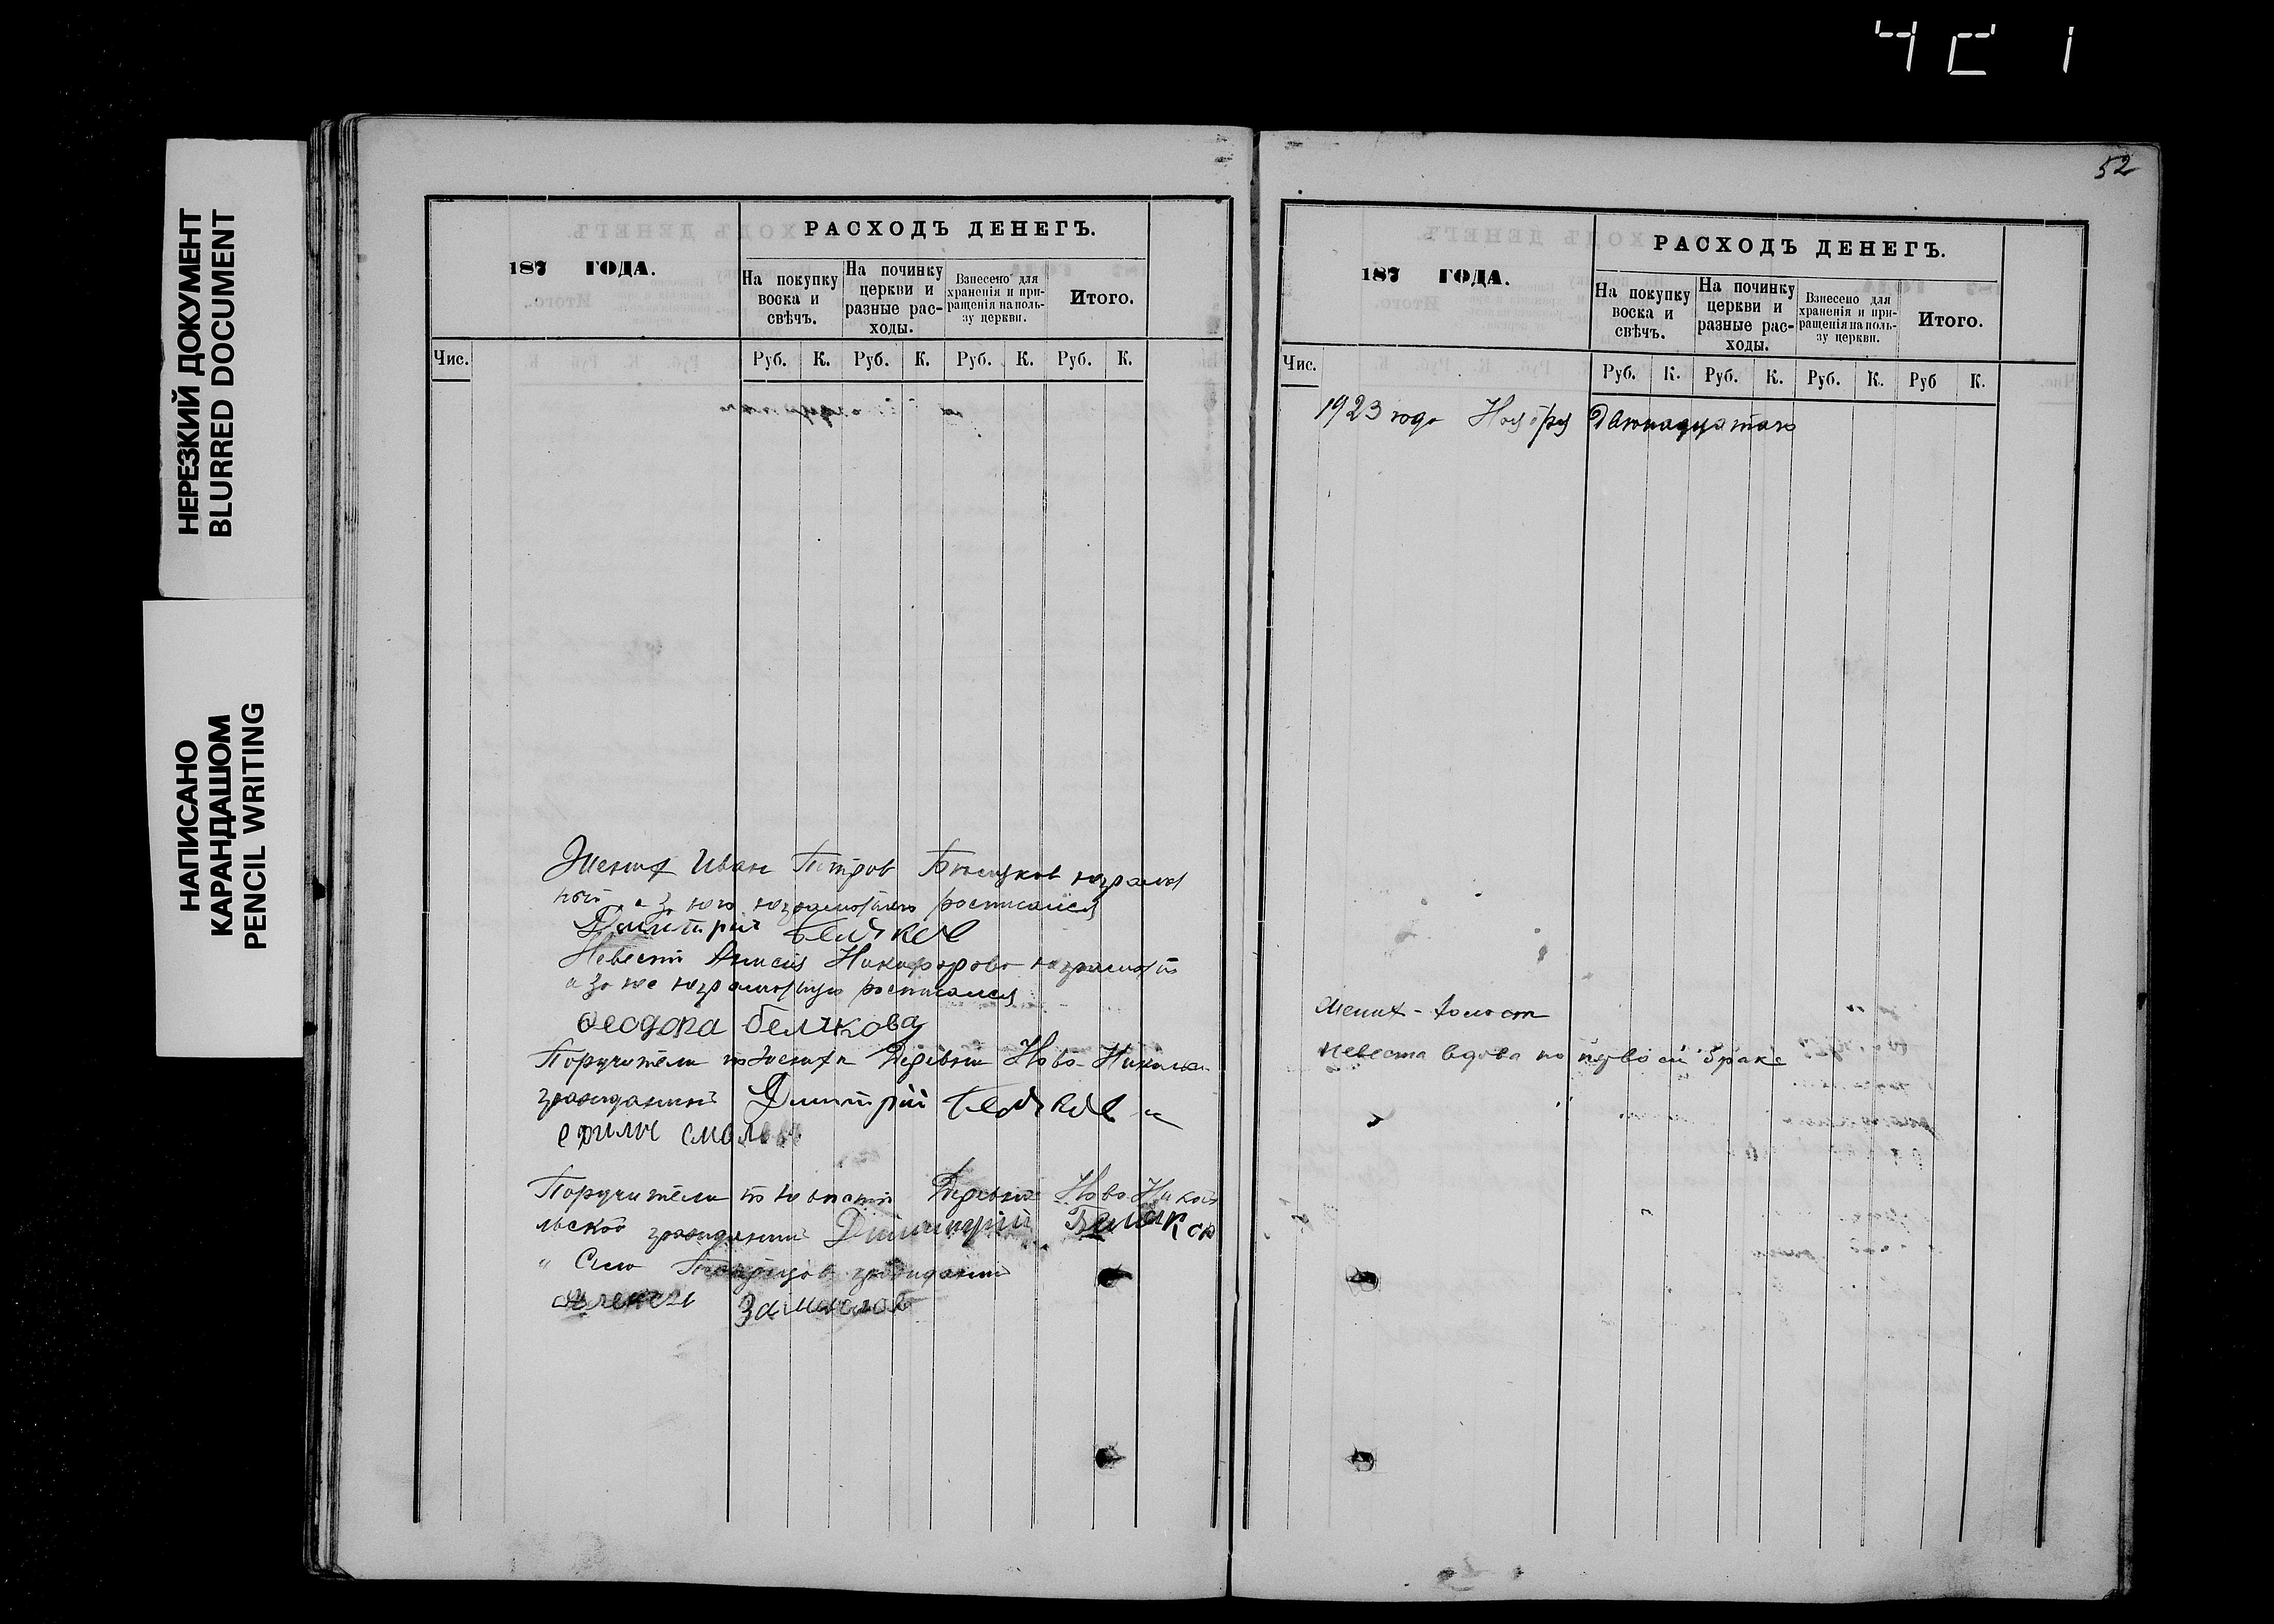 НЕРЕЗКИЙ ДОКУМЕНТ
BLURRED DOCUMENT
НАПИСАНО
КАРАНДАШОМ
PENCIL WRITING
187 ГОДА.
РАСХОДЪ ДЕНЕГЪ.
На покупку воска и свѣчъ.
На починку церкви и разные рас-ходы.
Взнесено для храненія и при-ращенія на поль-зу церкви.
Итого.
Чис.
Руб. К. Руб. К. Руб. К. Руб. К.
Жених Иван Петров неграмот
ный а за него неграмотного росписался
Дмитрий Беляков
Невест Анисия Никифорова неграмот
а за нее неграмотную росписался
Феодора белякова
Поручители по женихе Деревни Ново-Никольс
гражданин Дмитрий Беляков и
Поручители по невесте Деревни Ново Николь
льской гражданин Димитрий Беляков
и Село гражданин
52
187 ГОДА.
РАСХОДЪ ДЕНЕГЪ.
На покупку воска и свѣчъ.
На починку церкви и разные рас-ходы.
Взнесено для храненія и при-ращенія на поль-зу церкви.
Итого.
Чис.
Руб. К. Руб. К. Руб. К. Руб К.
1923 года Ноября двенадцатого
жених - холост
невеста вдова по первой браке